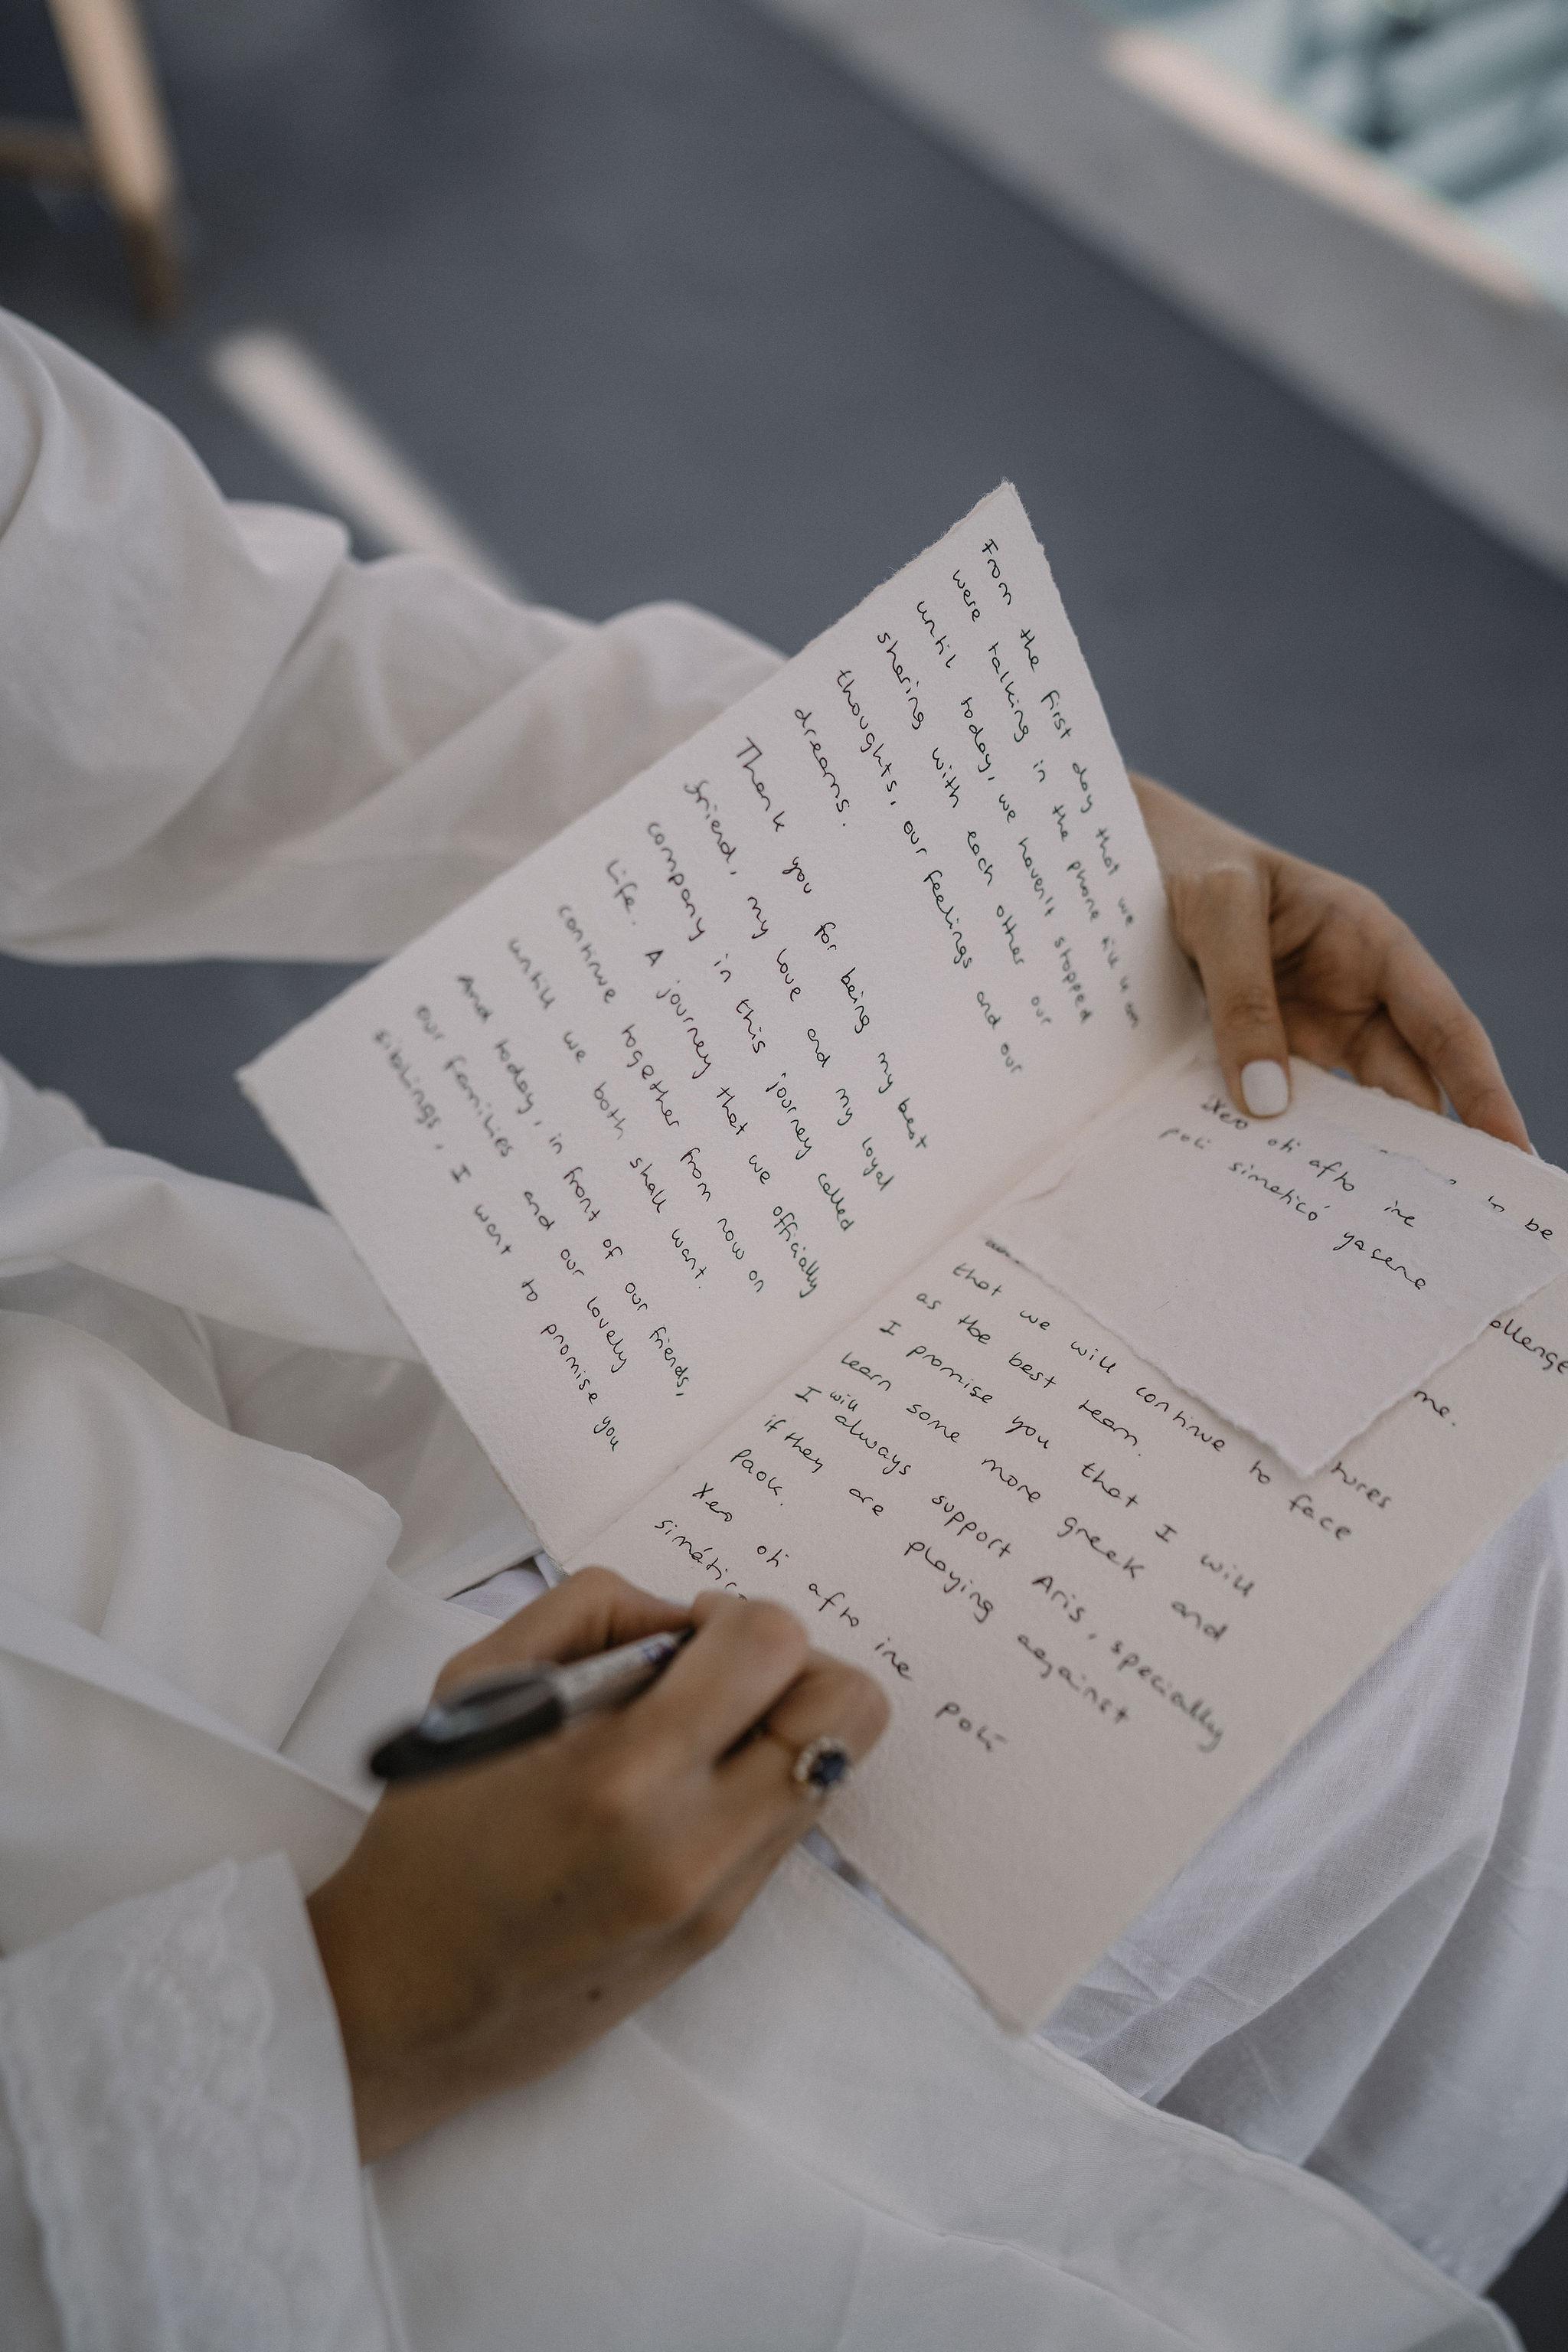 From the first day that we
were talking in the phone
until today, we haven't stopped
sharing with each other our
thoughts, our feelings and our
dreams.
Thank you for being my best
friend, my love and my loyal
company in this journey called
life. A journey that we officially
continue together from now on
until we both shall want.
And today, in front of our friends,
our families and our lovely
siblings, I want to promise you
to be
Xero oti afto ine
poli simaticó yasena
allenge
me.
tures
that we will continue to face
as the best team.
I promise you that I will
learn some more greek and
I will always support Aris, specially
if they are playing against
Paok.
Xero oti afto ine poli